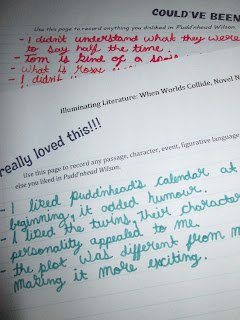 COULD'VE BEEN
Use this page to record anything you disliked in Pudd'nhead Wilson.
- I didn't understand what they were
to say half the time.
- Tom is kind of a
- What is
- I didn't
Illuminating Literature: When Worlds Collide, Novel N
really loved this!!!
Use this page to record any passage, character, event, figurative language
else you liked in Pudd'nhead Wilson.
- I liked Puddnhead's calendar at
beginning, it added humour.
- I liked the twins, their character
personality appealed to me.
- the plot was different from m
making it more exciting.